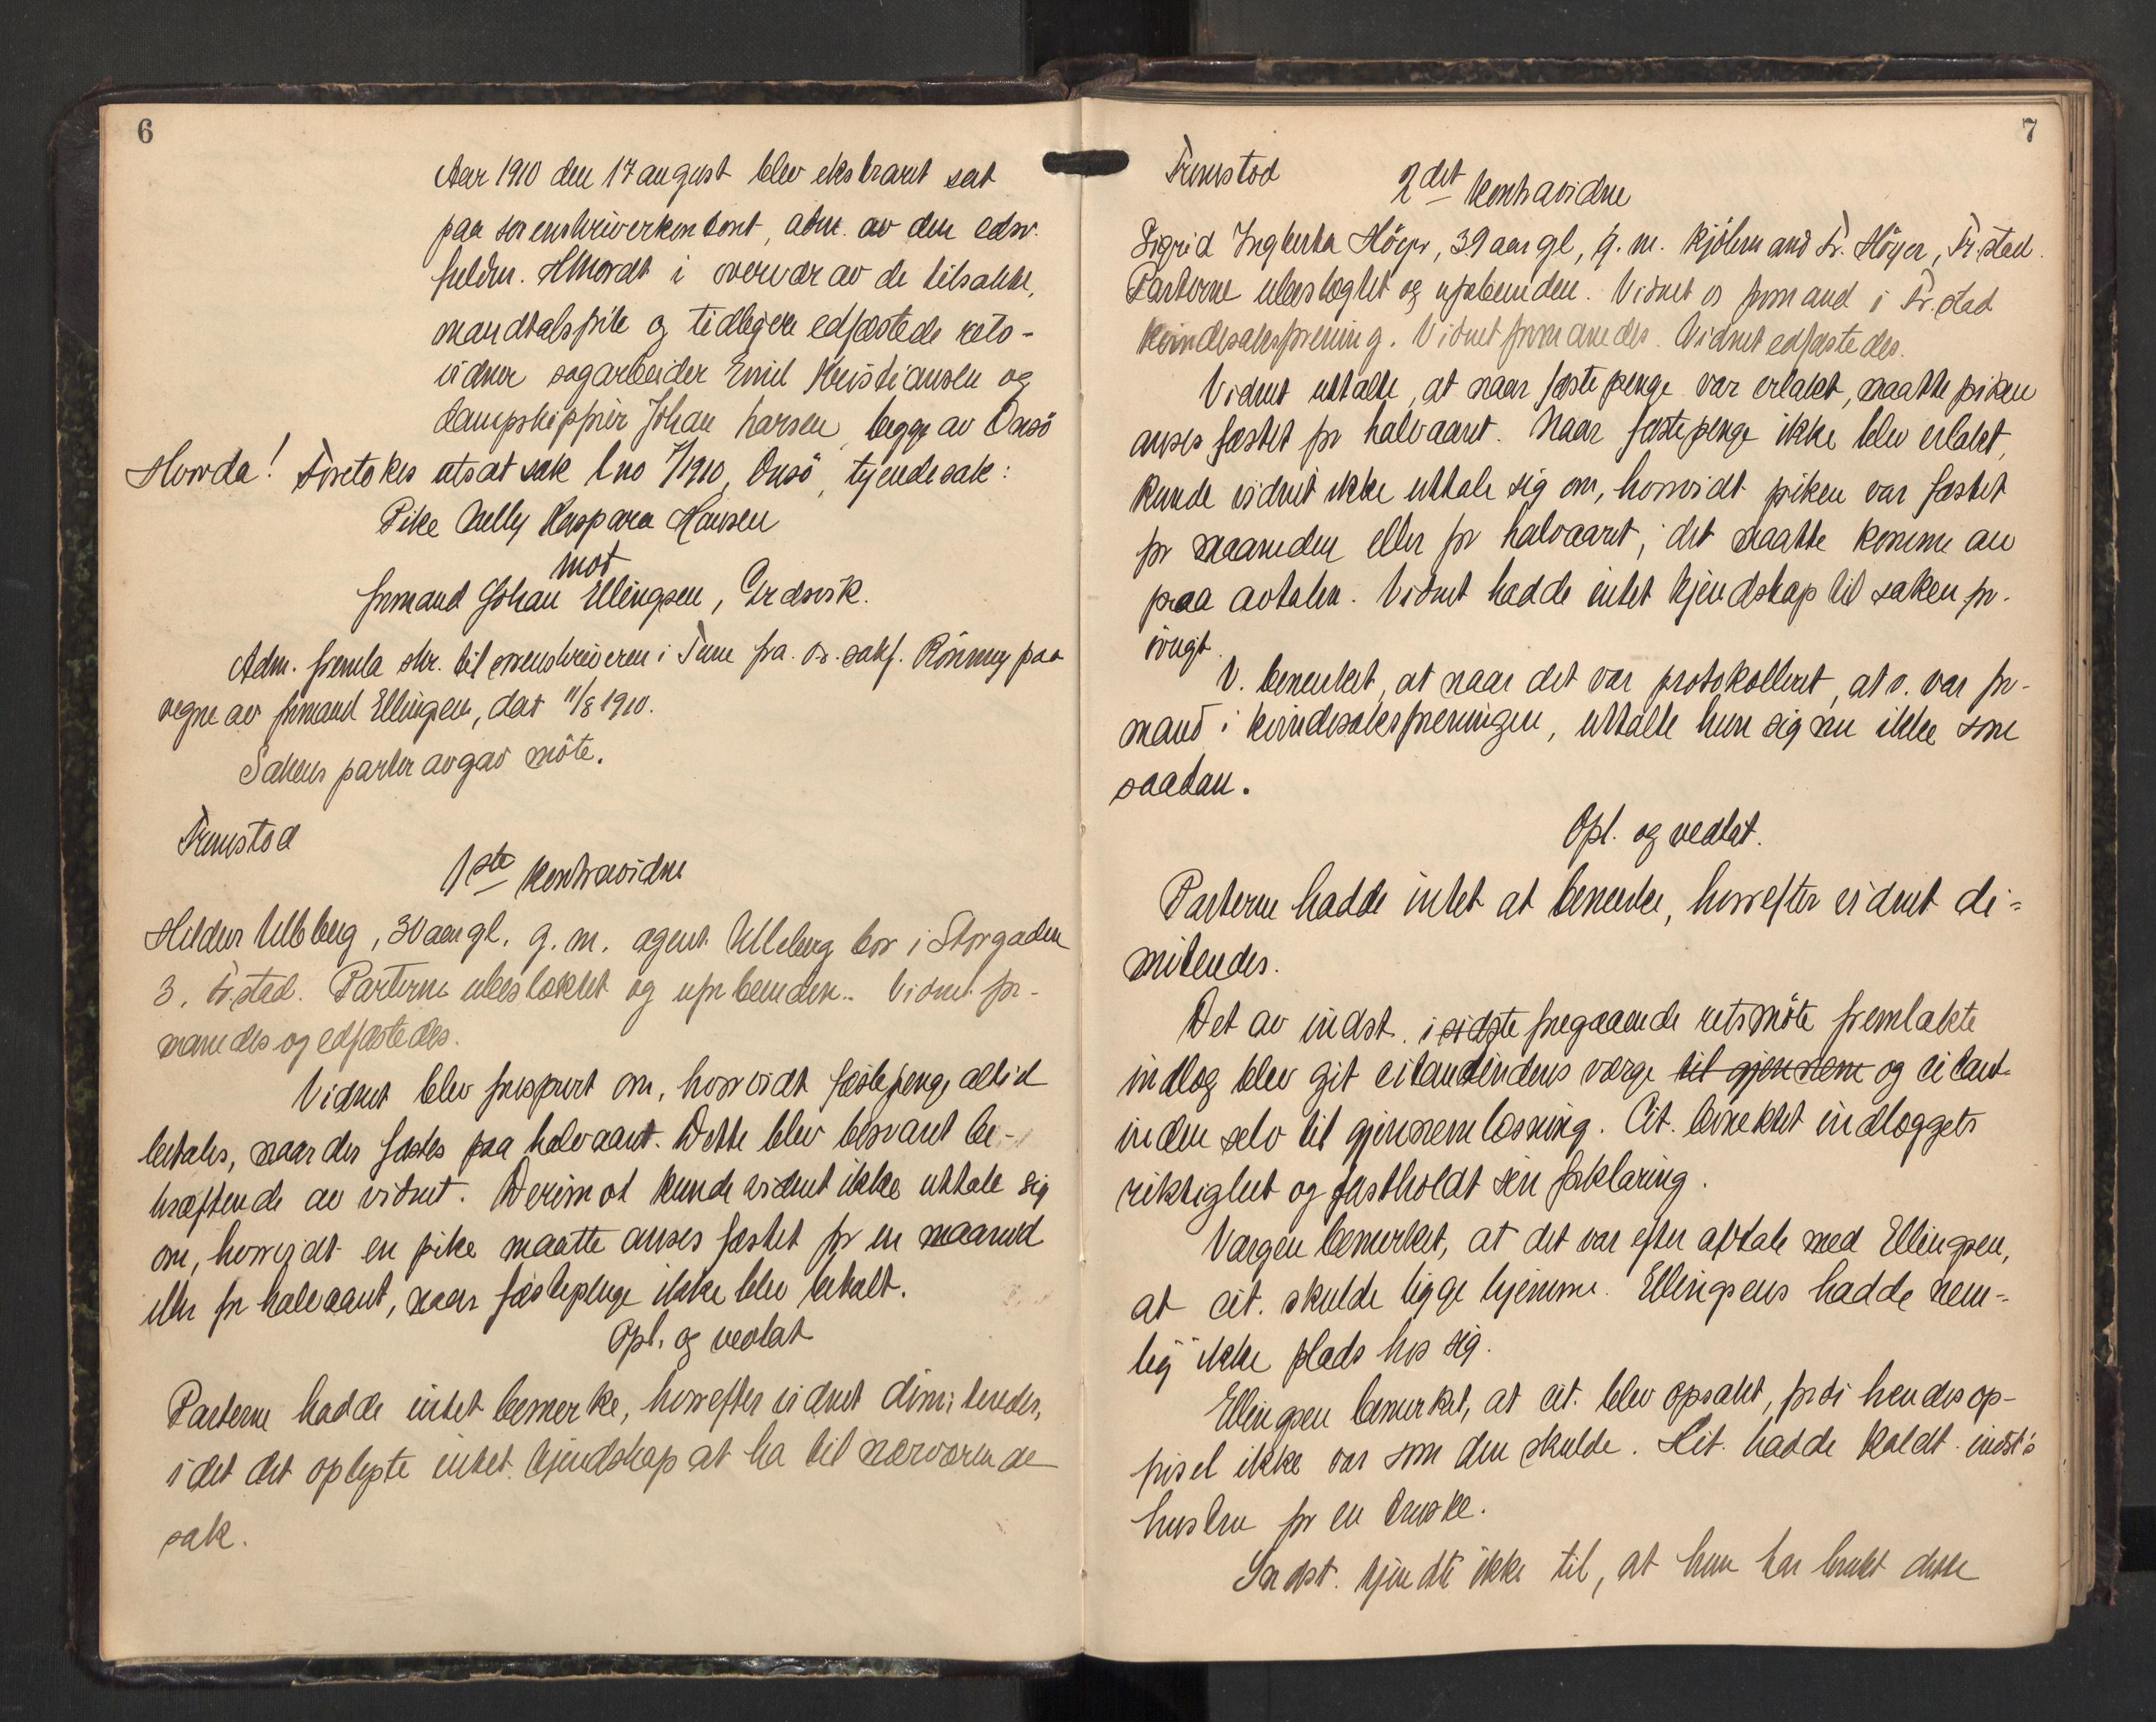 6
Aar 1910 den 17 august blev ekstraret sat
paa sorenskriverkontoret, adm. av den edsv.
fuldm. i overvær av de tilsakte,
mandtalsførte og tidligere edfæstede rets-
vidner sagarbeider Emil Kristiansen og
dampskipfører Johan Larsen, begge av Onsö
Hvorda! Foretokes utsat sak l no 7/1910, Onsö, tjendesak:
Pike Nelly Kaspara Hansen
mot
formand Johan Ellingsen,
Adm. fremla skr. til sorenskriveren i Tune fra o.r.sakf. Rönning paa
vegne av formand Ellingsen, dat 11/8 1910.
Sakens parter avgav möte.
Fremstod
1ste kontravidne
Hildur Ulleberg, 30 aar gl. g.m. agent Ulleberg bor i Storgaden
3, Fr.stad. Parterne ubeslektet og uforbunden. Vidnet for-
manedes og edfæstedes.
Vidnet blev forespurt om, hvorvidt fæstepenge altid
betales, naar der fæstes paa halvaaret. Dette blev besvaret be-
kræftende av vidnet. Derimot kunde vidnet ikke uttale sig
om, hvorvidt en pike maatte anses fæstet for en maaned
eller for halvaaret, naar fæstepenge ikke blev betalt.
Opl. og vedtat
Parterne hadde intet bemerke, hvorefter vidnet dimitteredes,
idet det oplyste intet kjendskap at ha til nærværende
sak.
7
Fremstod
2det kontravidne
Sigrid Ingberta Höyer, 39 aar gl, g.m. kjöbmand Fr. Höyer, Fr.stad.
Parterne ubeslegtet og uforbunden. Vidnet er formand i Fr.stad
kvindesaksforening. Vidnet formanedes. Vidnet edfæstedes.
Vidnet uttalte, at naar fæstepenge var erlakt, maatte piken
anses fæstet for halvaaret. Naar fæstepenge ikke blev erlakt,
kunde vidnet ikke uttale sig om, hvorvidt piken var fæstet
for maaneden eller for halvaaret; det maatte komme an
paa avtalen. Vidnet hadde intet kjendskap til saken for-
övrigt.
V. bemerket, at naar det var protokolleret, at v. var for-
mand i kvindesaksforeningen, uttalte hun sig nu ikke som
saadan.
Opl. og vedtat.
Parterne hadde intet at bemerke, hvorefter vidnet di-
miteredes.
Det av indst. i sidste foregaaende retsmöte fremlakte
indlæg blev git citantindens værge til gjennem og citant-
inden selv til gjennemlæsning. Cit. benektet indlæggets
riktighet og fastholdt sin forklaring.
Værgen bemerket, at det var efter avtale med Ellingsen,
at cit. skulde ligge hjemme. Ellingsens hadde nem-
lig ikke plads hos sig.
Ellingsen bemerket, at cit. blev opsakt, fordi hendes op-
försel ikke var som den skulde. Cit. hadde kaldt indst's
hustru for en truske.
Indst. kjendte ikke til, at hun har brukt dette